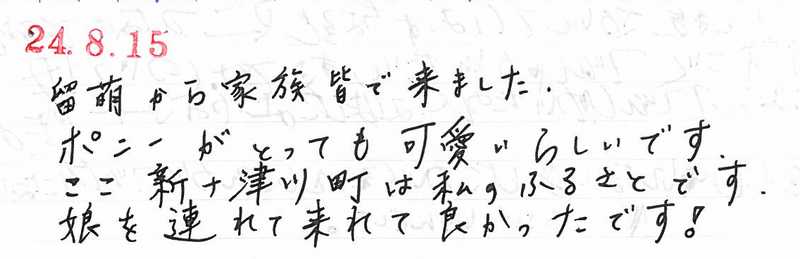 24.8.15
留萌から家族皆で来ました.
ポニーがとっても可愛いらしいです.
ここ新十津川町は私のふるさとです.
娘を連れて来れて良かったです!